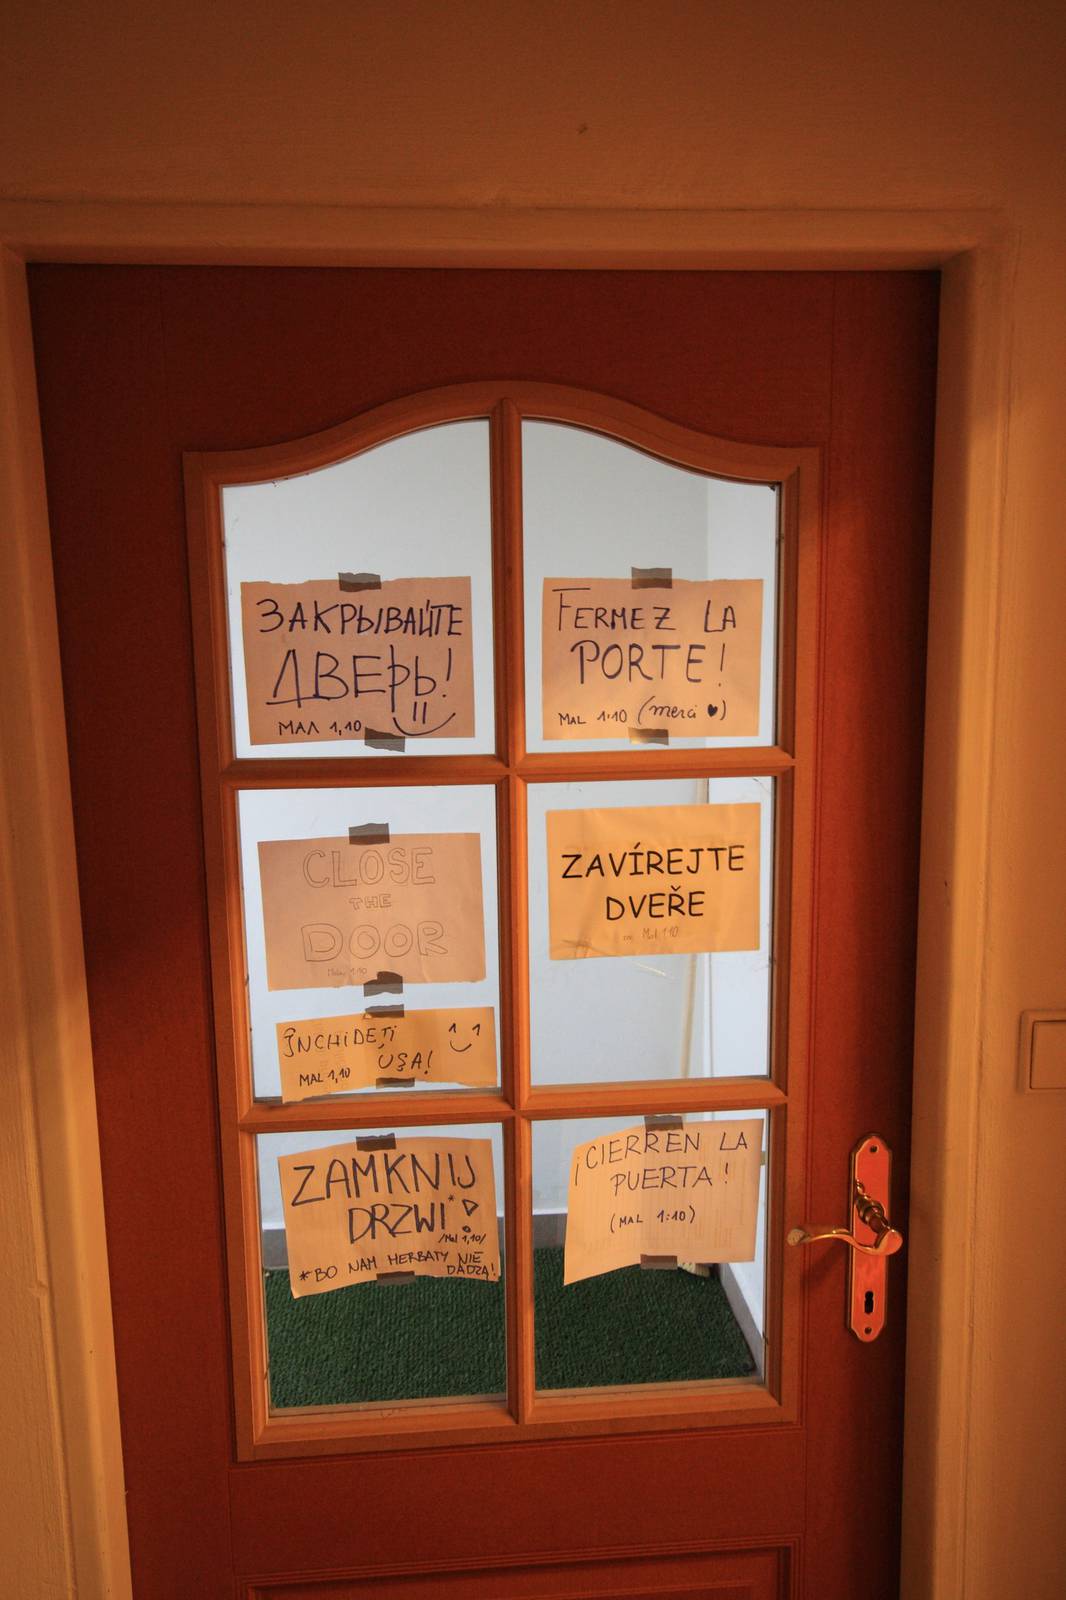 ЗАКРЫВАЙТЕ
ДВЕРЬ!
МАЛ 1,10
FERMEZ LA
PORTE!
MAL 1:10 (merci ♥)
CLOSE
THE
DOOR
1:10
ZAVÍREJTE
DVEŘE
Mal 1:10
ÎNCHIDEȚI
UȘA!
MAL 1,10
ZAMKNIJ
DRZWI*!
/Mal 1,10/
*BO NAM HERBATY NIE
DADZĄ!
¡CIERREN LA
PUERTA!
(MAL 1:10)